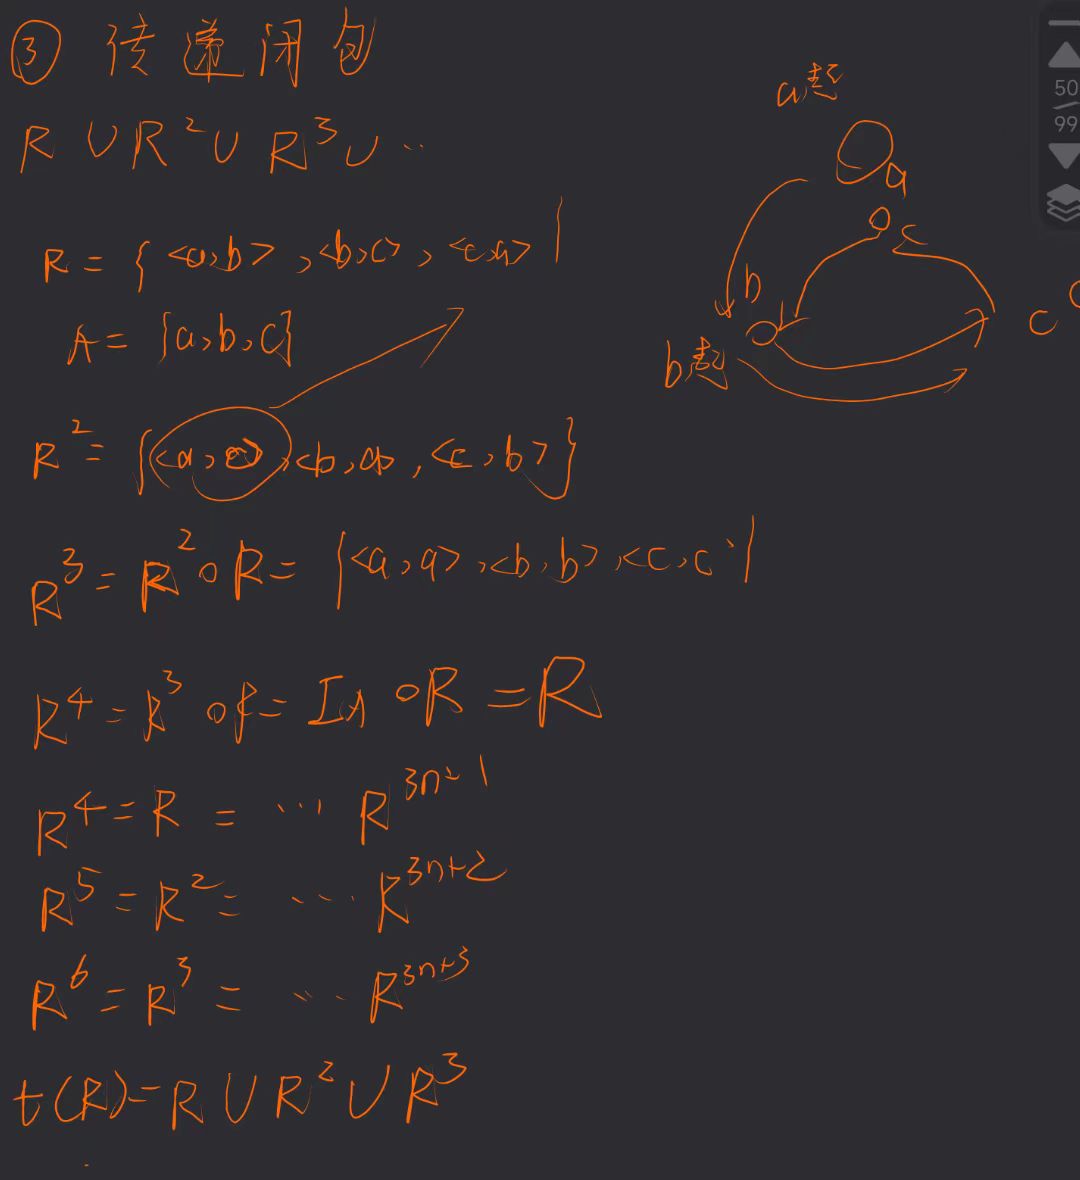 ③ 传递闭包
R ∪ R² ∪ R³ ∪ ...
R = { <a,b>, <b,c>, <c,a> }
A = {a,b,c}
R² = {<a,c>, <b,a>, <c,b>}
R³ = R² ∘ R = {<a,a>, <b,b>, <c,c>}
R⁴ = R³ ∘ R = I_A ∘ R = R
R⁴ = R = ... R³ⁿ⁺¹
R⁵ = R² = ... R³ⁿ⁺²
R⁶ = R³ = ... R³ⁿ⁺³
t(R) = R ∪ R² ∪ R³
a起
a
c
b
b起
c
50
99